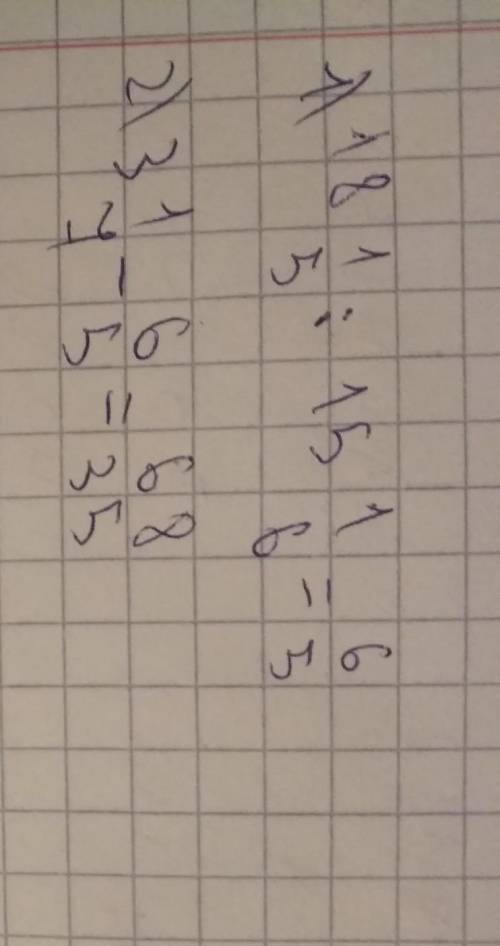 1) 18 1/5 : 15 1/6 = 6/5
2) 3 1/7 - 6/5 = 68/35